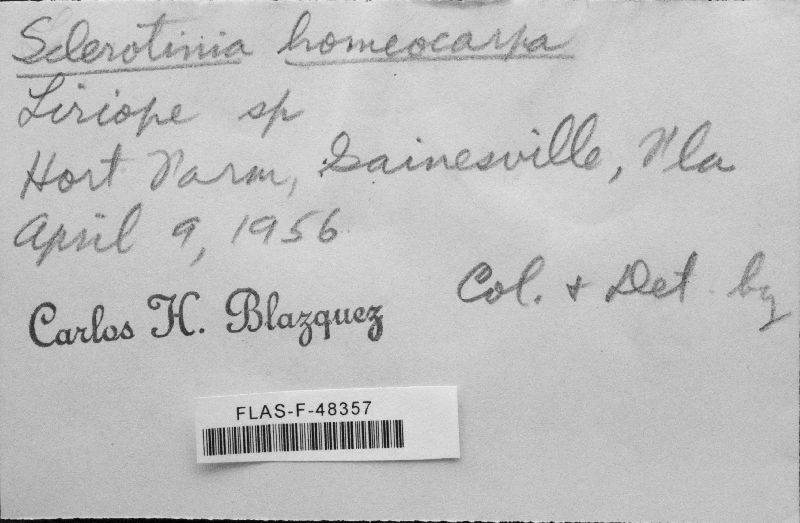 Sclerotinia homeocarpa
Liriope sp
Hort Farm, Gainesville, Fla
April 9, 1956
Col. + Det by
Carlos H. Blazquez
FLAS-F-48357